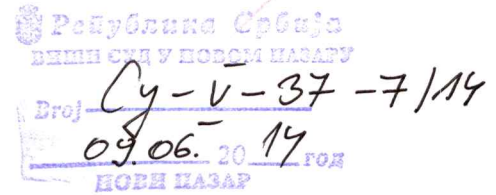 Република Србија
ВИШИ СУД У НОВОМ ПАЗАРУ
Broj Су-V-37-7/14
09.06. 2014 год
НОВИ ПАЗАР